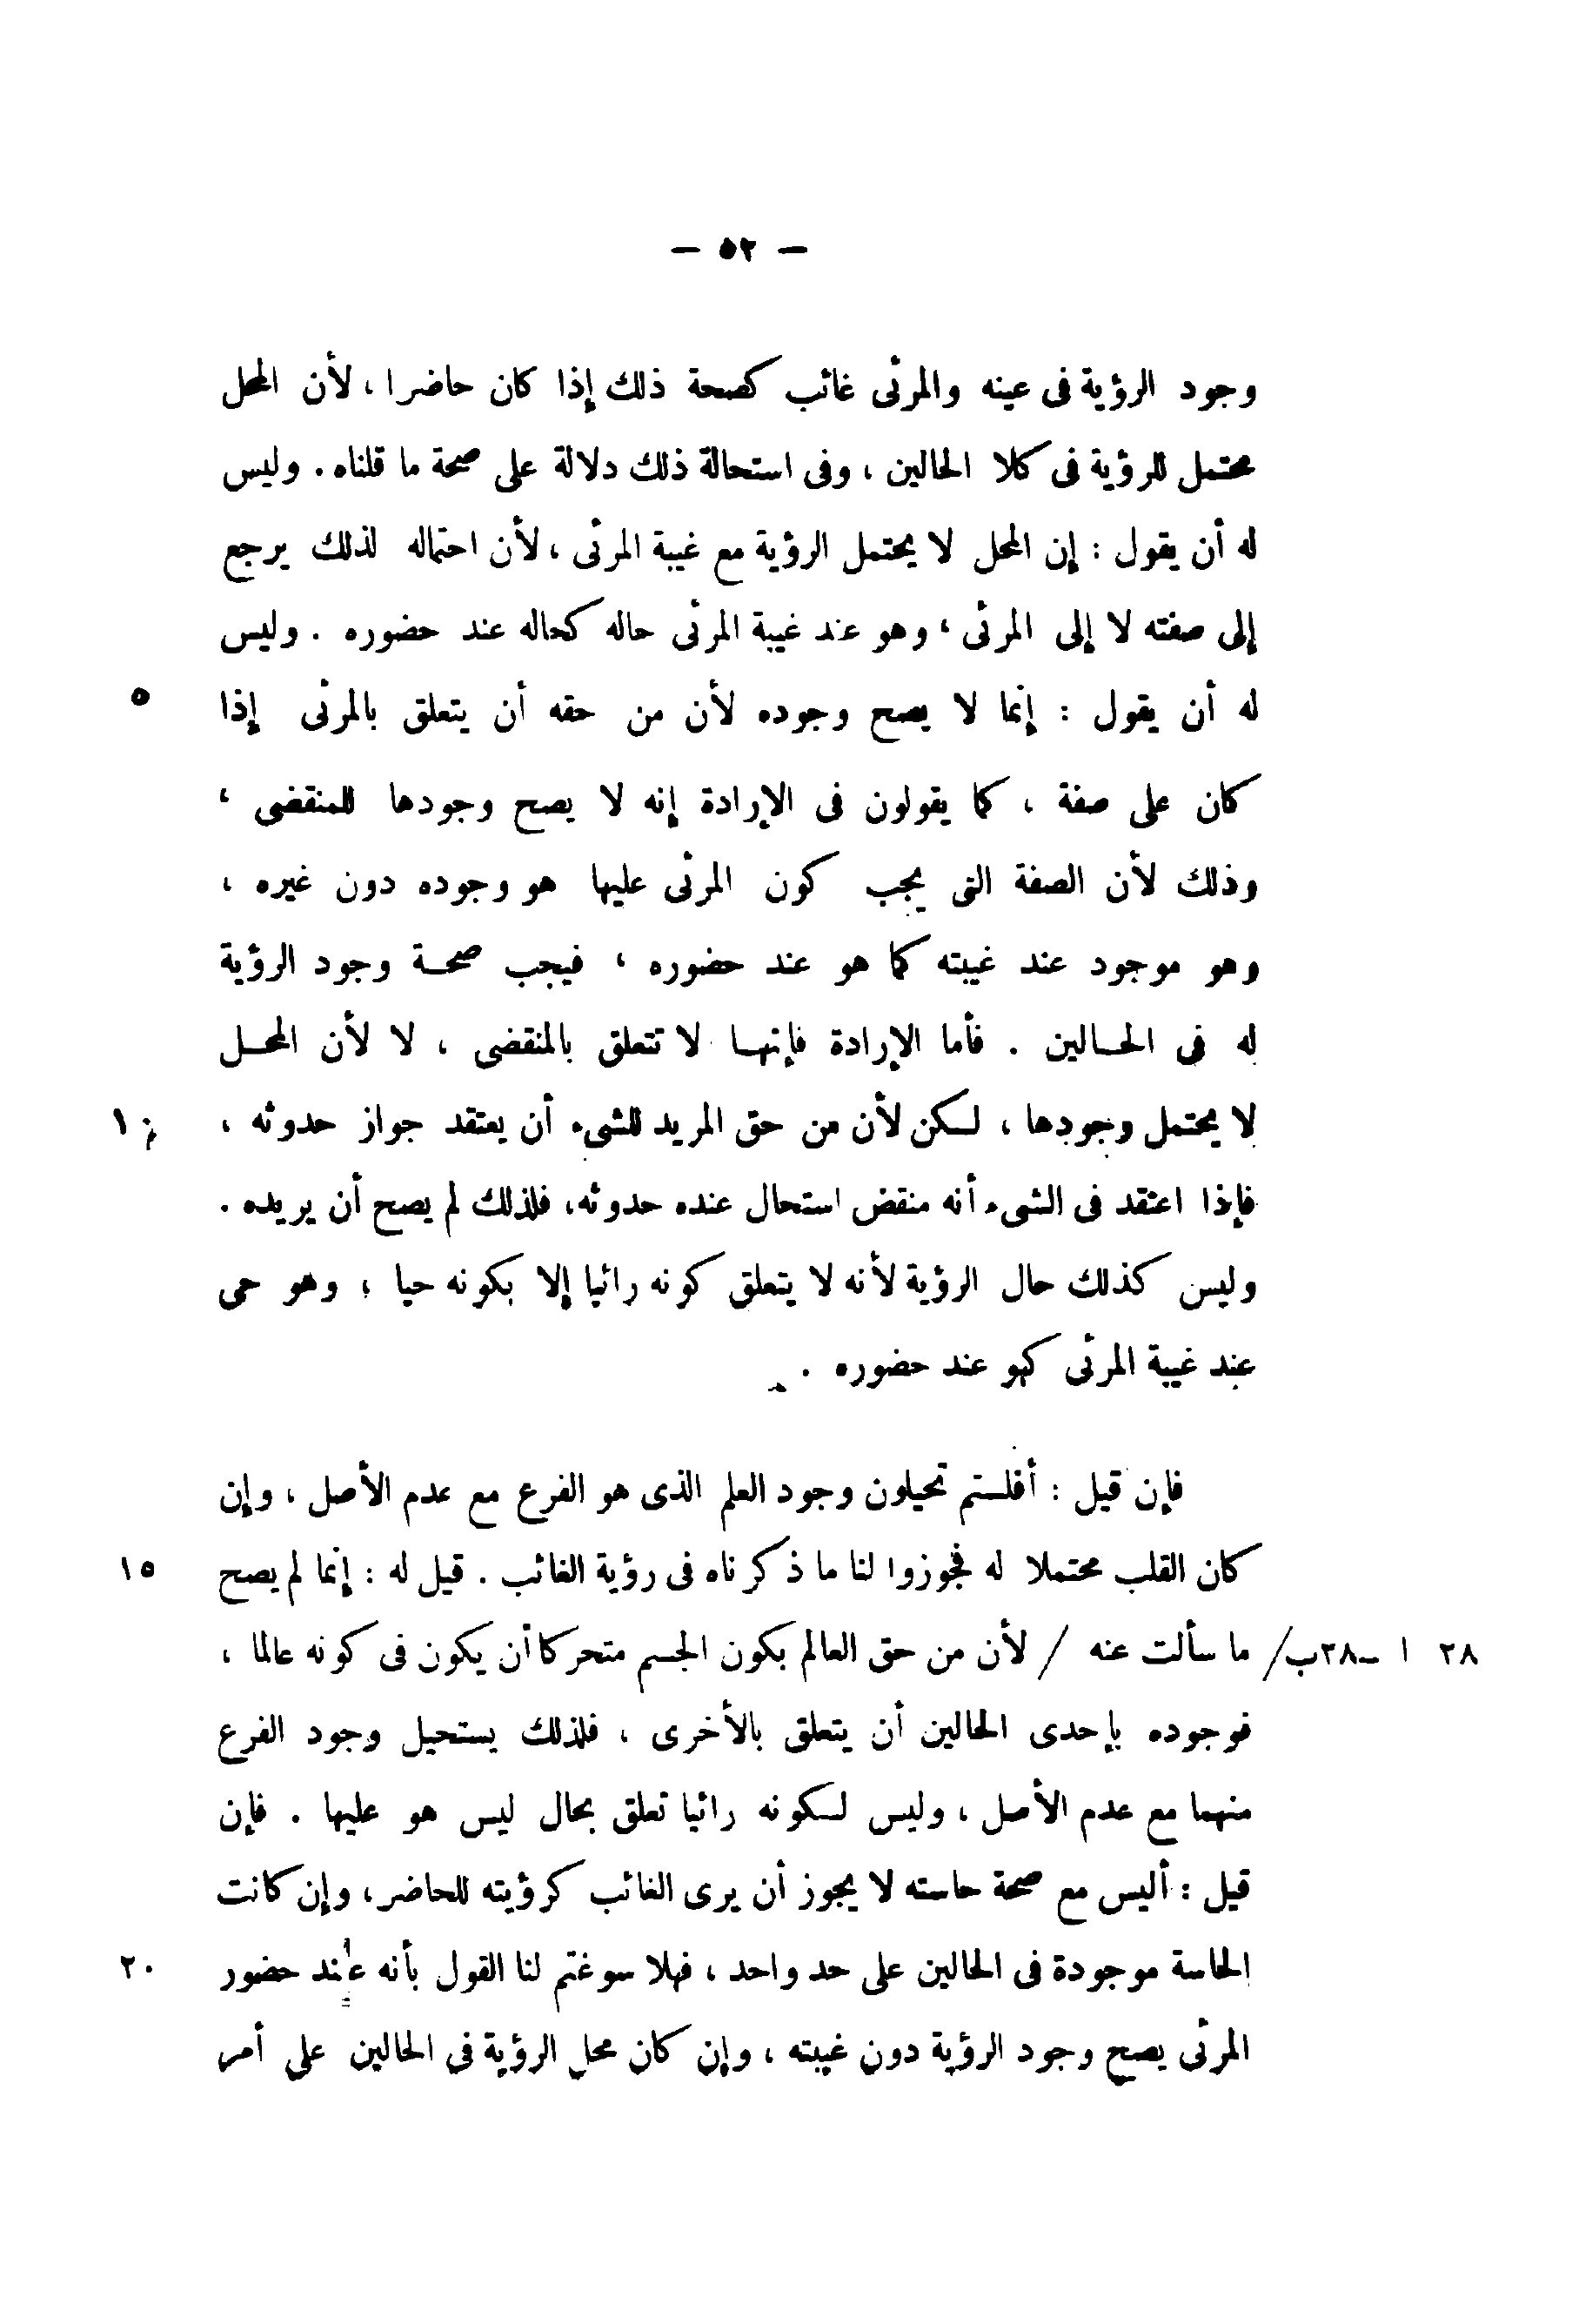 — ٥٢ —
وجود الرؤية فى عينه والمرئى غائب كصحة ذلك إذا كان حاضرا ، لأن المحل
محتمل للرؤية فى كلا الحالين ، وفى استحالة ذلك دلالة على صحة ما قلناه . وليس
له أن يقول : إن المحل لا يحتمل الرؤية مع غيبة المرئى ، لأن احتماله لذلك يرجع
إلى صفته لا إلى المرئى ، وهو عند غيبة المرئى حاله كحاله عند حضوره . وليس
له أن يقول : إنما لا يصح وجوده لأن من حقه أن يتعلق بالمرئى إذا ٥
كان على صفة ، كما يقولون فى الإرادة إنه لا يصح وجودها للمنقضى ،
وذلك لأن الصفة التى يجب كون المرئى عليها هو وجوده دون غيره ،
وهو موجود عند غيبته كما هو عند حضوره ، فيجب صحـة وجود الرؤية
له فى الحـالين . فأما الإرادة فإنهـا لا تتعلق بالمنقضى ، لا لأن المحـل
لا يحتمل وجودها ، لـكن لأن من حق المريد للشىء أن يعتقد جواز حدوثه ، ١٠
فإذا اعتقد فى الشىء أنه منقض استحال عنده حدوثه ، فلذلك لم يصح أن يريده .
وليس كذلك حال الرؤية لأنه لا يتعلق كونه رائيا إلا بكونه حيا ، وهو حى
عند غيبة المرئى كهو عند حضوره .
فإن قيل : أفلـستم تحيلون وجود العلم الذى هو الفرع مع عدم الأصل ، وإن
كان القلب محتملا له فجوزوا لنا ما ذكرناه فى رؤية الغائب . قيل له : إنما لم يصح ١٥
٢٨ ا ــ ٢٨ب/ ما سألت عنه / لأن من حق العالم بكون الجسم متحركا أن يكون فى كونه عالما ،
فوجوده بإحدى الحالين أن يتعلق بالأخرى ، فلذلك يستحيل وجود الفرع
منهما مع عدم الأصل ، وليس لـكونه رائيا تعلق بحال ليس هو عليها . فإن
قيل : أليس مع صحة حاسته لا يجوز أن يرى الغائب كرؤيته للحاضر ، وإن كانت
الحاسة موجودة فى الحالين على حد واحد ، فهلا سوغتم لنا القول بأنه عند حضور ٢٠
المرئى يصح وجود الرؤية دون غيبته ، وإن كان محل الرؤية فى الحالين على أمر